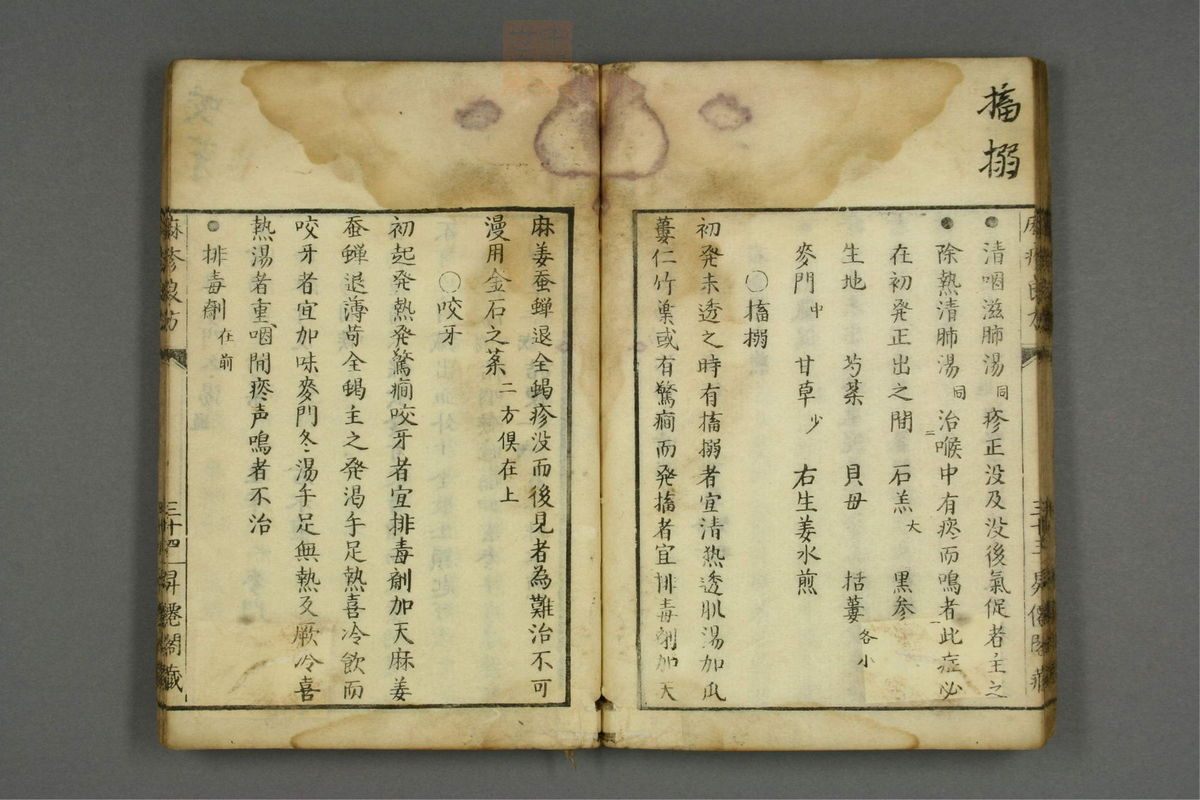 搐搦
清咽滋肺湯 同 疹正没及没後氣促者主之
除熱清肺湯 同 治喉中有疼而鳴者此症必
在初発正出之間 石羔 大 黒参
生地 芍薬 貝母 括蔞 各小
麥門 中 甘草 少 右生姜水煎
〇搐搦
初発未透之時有搐搦者宜清熱透肌湯加瓜
蔞仁竹葉或有驚癎而発搐者宜排毒剤加天
麻姜蚕蝉退全蝎疹没而後見者為難治不可
漫用金石之薬 二方俱在上
〇咬牙
初起発熱発驚癎咬牙者宜排毒剤加天麻姜
蚕蝉退薄荷全蝎主之発渇手足熱喜冷飲而
咬牙者宜加味麥門冬湯手足無熱及厥冷喜
熱湯者重咽間疼声鳴者不治
排毒劑 在前
三十四 昇僊閣藏